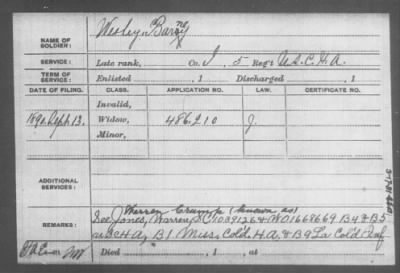 NAME OF SOLDIER: Wesley Barney
SERVICE: Late rank, Co. I, 5 Reg't U.S.C.H.A.
TERM OF SERVICE: Enlisted , 1 Discharged , 1
DATE OF FILING. CLASS. APPLICATION NO. LAW. CERTIFICATE NO.
Invalid,
1890 Sept. 13. Widow, 486.210 J.
Minor,
ADDITIONAL SERVICES:
Warren Crump (known as)
REMARKS: See Jones, Warren, SC 1089126 & WO 1668669 B4 & B5
USCHA, B1 Miss. Cold. H.A. & B9 La Cold Inf
Died , 1 , at